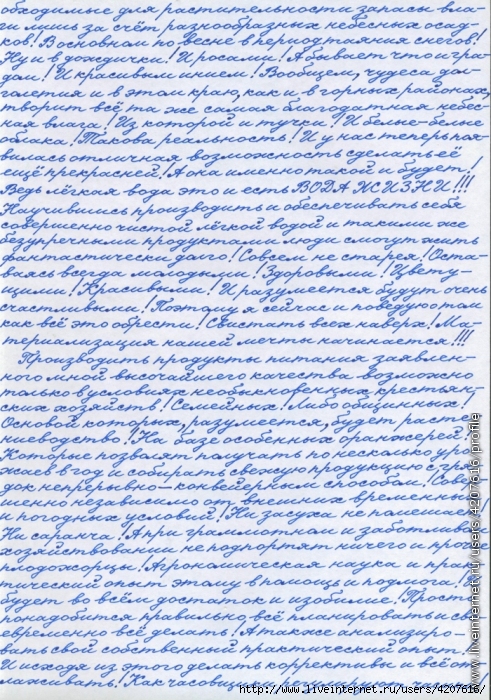 обходимые для растительности запасы вла-
ги лишь за счёт разнообразных небесных осад-
ков! В основном по весне в период таяния снегов!
Ну и в дожди чеи! И росами! А бывает что и гра-
дом! И красивым инием! Вообщем, чудеса дол-
голетия и в этом краю, как и в горных районах,
творит всё та же самая благодатная небес-
ная влага! Из которой и тучки! И белые-белые
облака! Такова реальность! И у нас теперь поя-
вилась отличная возможность сделать её
ещё прекрасней! А она именно такой и будет!
Ведь лёгкая вода это и есть ВОДА ЖИЗНИ!!!
Научившись производить и обеспечивать себя
совершенно чистой лёгкой водой и такими же
безупречными продуктами люди смогут жить
фантастически долго! Совсем не старея! Оста-
ваясь всегда молодыми! Здоровыми! Цвету-
щими! Красивыми! И разумеется будут очень
счастливыми! Поэтому я сейчас и поведую о том
как всё это обрести! Свистать всех наверх! Ма-
териализация нашей мечты начинается!!!
Производить продукты питания заявлен-
ного мной высочайшего качества возможно
только в условиях необыкновенных крестьян-
ских хозяйств! Семейных! Либо общинных!
Основой которых, разумеется, будет расте-
ниеводство! На базе особенных оранжерей!
Которые позволят получать по несколько уро-
жаев в год и собирать свежую продукцию с гря-
док непрерывно-конвейерным способом! Совер-
шенно независимо от внешних временных
и погодных условий! Ни засуха не помешает!
Ни саранча! А при грамотном и заботливом
хозяйствовании не подпортят ничего и прочие
плодожорцы! Агрономическая наука и прак-
тический опыт этому в помощь и подмога! И
будет во всём достаток и изобилие! Просто
понадобится правильно всё планировать и сво-
евременно всё делать! А также анализиро-
вать свой собственный практический опыт!
И исходя из этого делать коррективы и всё от-
лаживать! Как часовщик
www.liveinternet.ru/users/4207616_profile
http://www.liveinternet.ru/users/4207616/